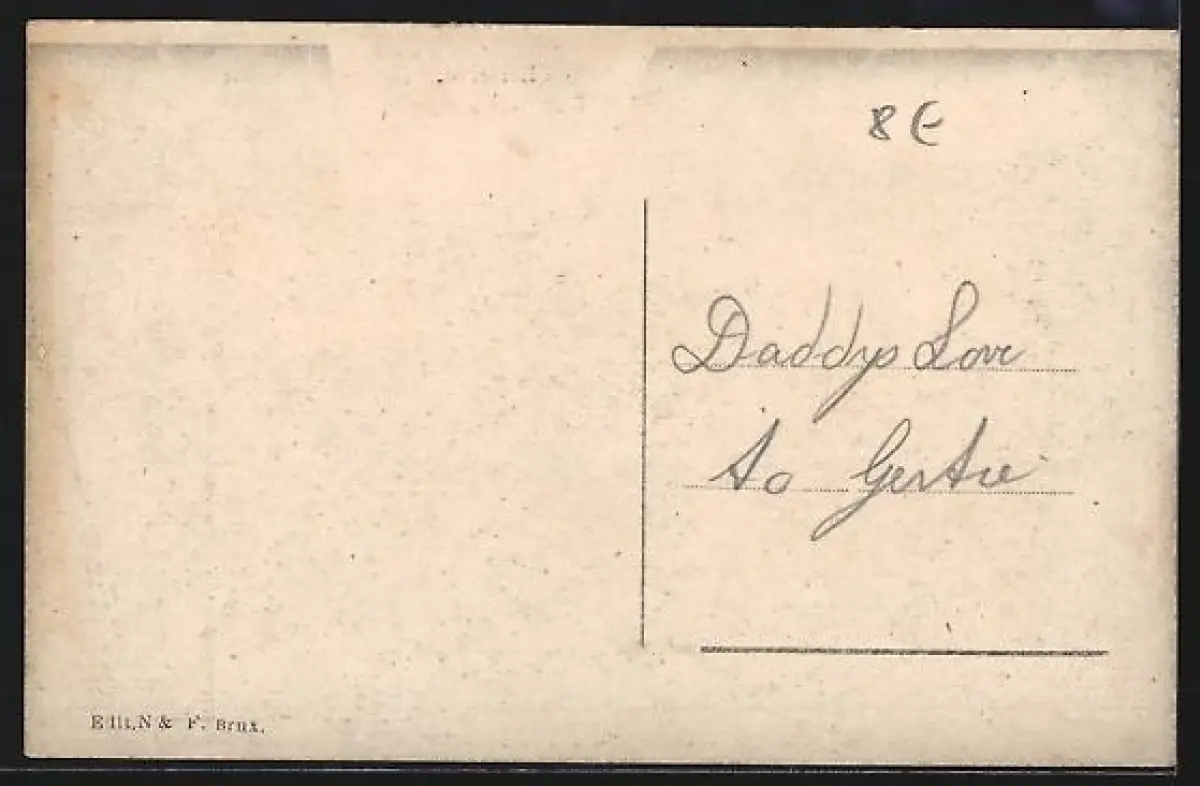 8 €
Daddys Love
to Gertie
Edit. N & F. Brux.